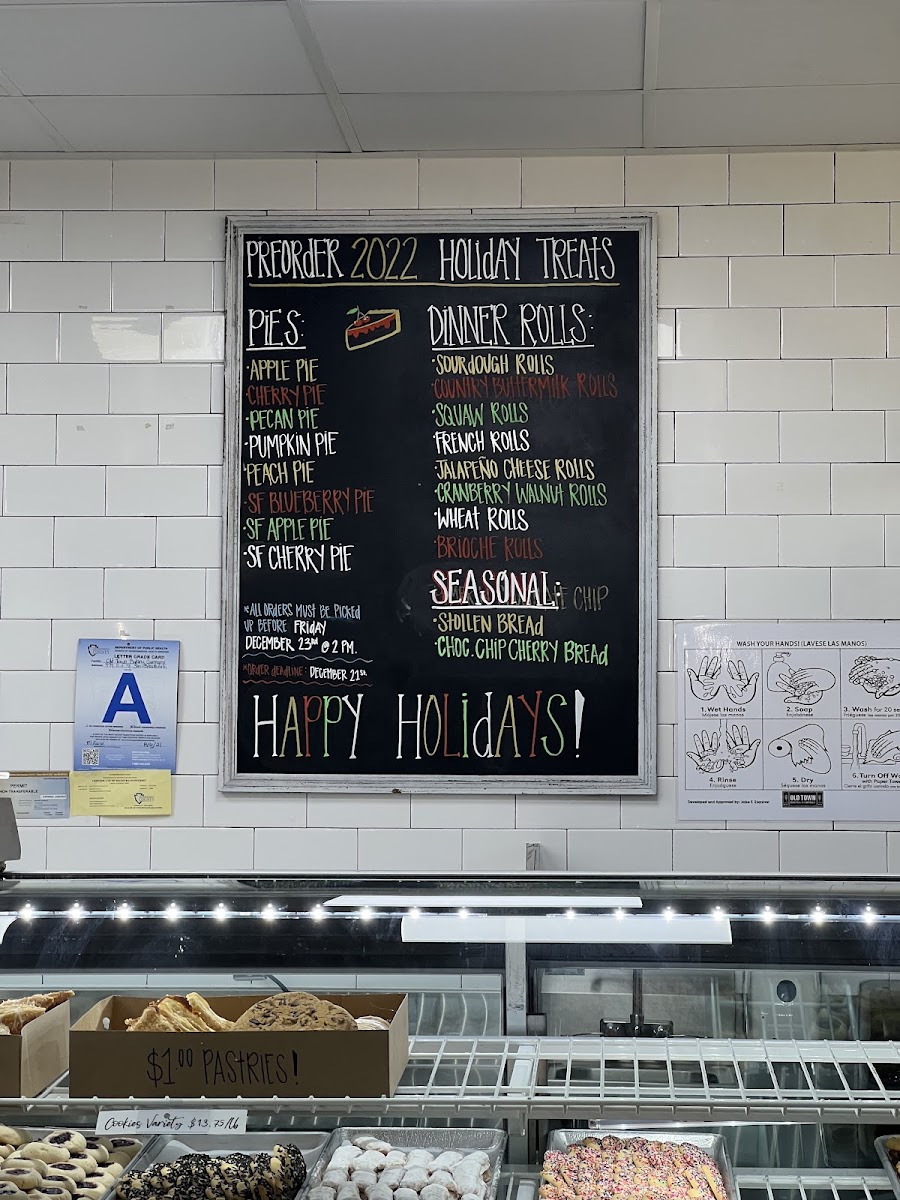 PREORDER 2022 HOLIDAY TREATS
PIES:
·APPLE PIE
·CHERRY PIE
·PECAN PIE
·PUMPKIN PIE
·PEACH PIE
·SF BLUEBERRY PIE
·SF APPLE PIE
·SF CHERRY PIE
*ALL ORDERS MUST BE PICKED
UP BEFORE FRIDAY
DECEMBER 23rd @ 2 PM.
*ORDER DEADLINE: DECEMBER 21st.
DINNER ROLLS:
·SOURDOUGH ROLLS
·COUNTRY BUTTERMILK ROLLS
·SQUAW ROLLS
·FRENCH ROLLS
·JALAPEÑO CHEESE ROLLS
·CRANBERRY WALNUT ROLLS
·WHEAT ROLLS
·BRIOCHE ROLLS
SEASONAL:
CHIP
·STOLLEN BREAD
·CHOC.CHIP CHERRY BREAD
HAPPY HOLIDAYS!
DEPARTMENT OF PUBLIC HEALTH
LETTER GRADE CARD
A
PERMIT
NON TRANSFERABLE
WASH YOUR HANDS! (LAVESE LAS MANOS)
1. Wet Hands
Mójese las manos
2. Soap
Enjabónese
3. Wash for 20 se
4. Rinse
Enjuáguese
5. Dry
Séquese las manos
6. Turn Off Wa
with Paper Tow
OLD TOWN
$1.00 PASTRIES!
Cookies Variety $13.75/lb